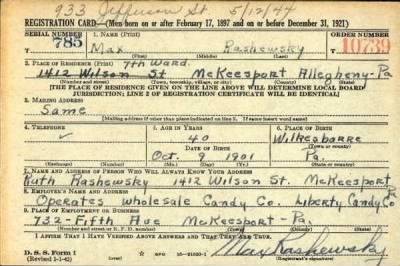 933 Jefferson St 5/12/44
REGISTRATION CARD—(Men born on or after February 17, 1897 and on or before December 31, 1921)
SERIAL NUMBER 1. NAME (Print) ORDER NUMBER
785 Max Rashewsky 10739
(First) (Middle) (Last)
2. PLACE OF RESIDENCE (Print) 7th Ward.
1412 Wilson St McKeesport Allegheny-Pa
(Number and street) (Town, township, village, or city) (County) (State)
[THE PLACE OF RESIDENCE GIVEN ON THE LINE ABOVE WILL DETERMINE LOCAL BOARD
JURISDICTION; LINE 2 OF REGISTRATION CERTIFICATE WILL BE IDENTICAL]
3. MAILING ADDRESS
Same
[Mailing address if other than place indicated on line 2. If same insert word same]
4. TELEPHONE 5. AGE IN YEARS 6. PLACE OF BIRTH
✓ 40 Wilkesbarre
DATE OF BIRTH (Town or county)
Oct. 9 1901 Pa.
(Exchange) (Number) (Mo.) (Day) (Yr.) (State or country)
7. NAME AND ADDRESS OF PERSON WHO WILL ALWAYS KNOW YOUR ADDRESS
Ruth Rashewsky 1412 Wilson St. McKeesport Pa
8. EMPLOYER'S NAME AND ADDRESS
Operates wholesale Candy Co. Liberty Candy Co
9. PLACE OF EMPLOYMENT OR BUSINESS
732-Fifth Ave McKeesport-Pa.
(Number and street or R. F. D. number) (Town) (County) (State)
I AFFIRM THAT I HAVE VERIFIED ABOVE ANSWERS AND THAT THEY ARE TRUE.
D. S. S. Form 1
(Revised 1-1-42) (over) Max Rashewsky